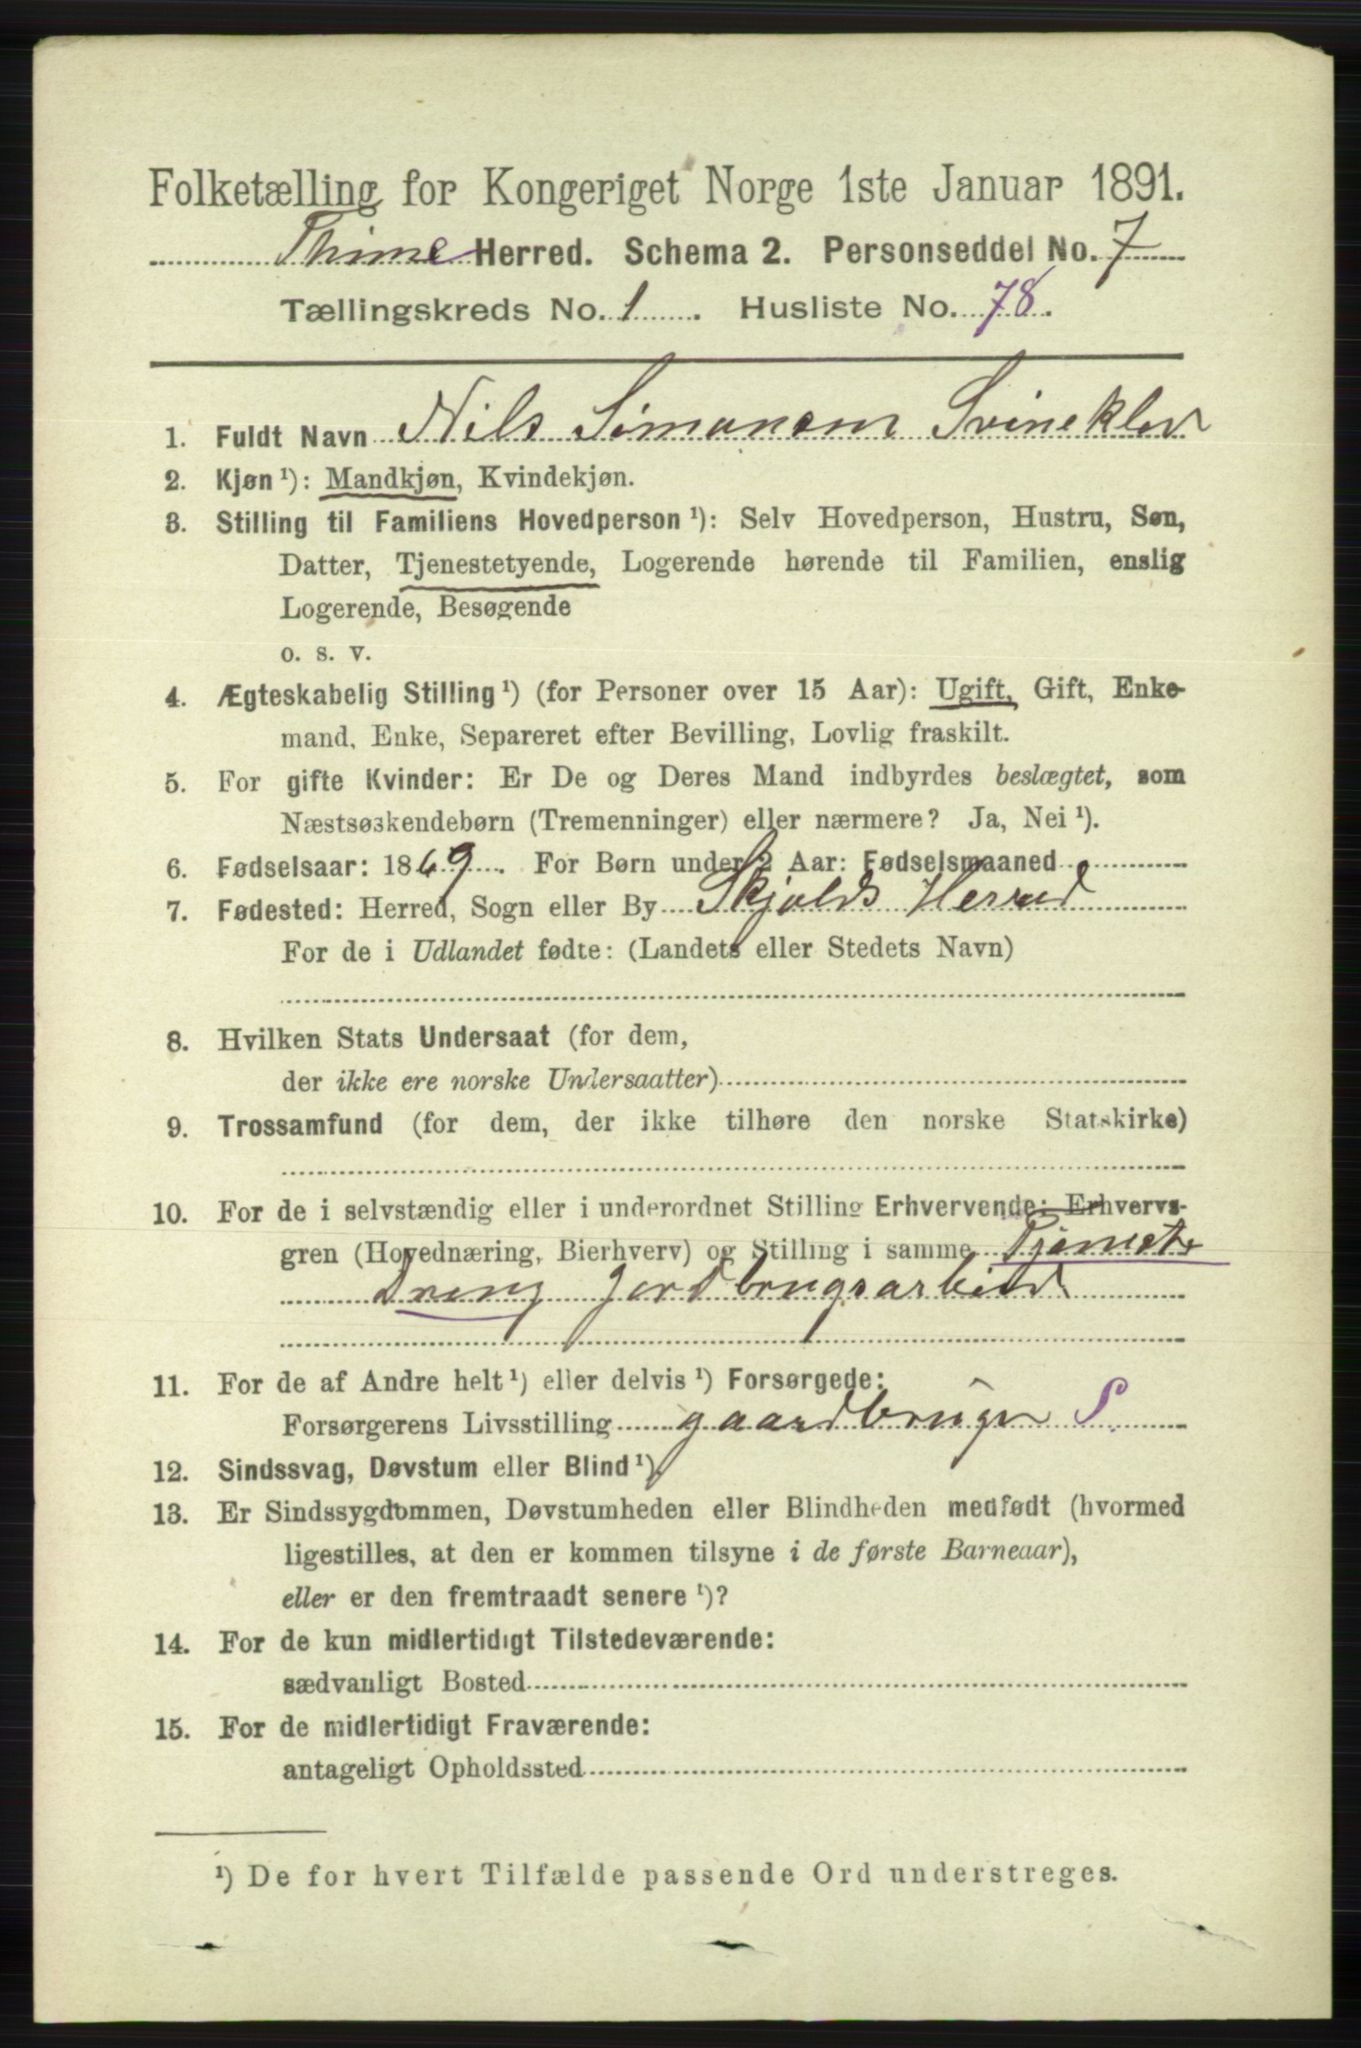 Folketælling for Kongeriget Norge 1ste Januar 1891.
Thime Herred. Schema 2. Personseddel No. 7
Tællingskreds No. 1. Husliste No. 78.
1. Fuldt Navn Nils Simonsen Svinekler
2. Kjøn ¹): Mandkjøn, Kvindekjøn.
3. Stilling til Familiens Hovedperson ¹): Selv Hovedperson, Hustru, Søn,
Datter, Tjenestetyende, Logerende hørende til Familien, enslig
Logerende, Besøgende
o. s. v.
4. Ægteskabelig Stilling ¹) (for Personer over 15 Aar): Ugift, Gift, Enke-
mand, Enke, Separeret efter Bevilling, Lovlig fraskilt.
5. For gifte Kvinder: Er De og Deres Mand indbyrdes beslægtet, som
Næstsøskendebørn (Tremenninger) eller nærmere? Ja, Nei ¹).
6. Fødselsaar: 1869. For Børn under 2 Aar: Fødselsmaaned
7. Fødested: Herred, Sogn eller By Skjolds Herred
For de i Udlandet fødte: (Landets eller Stedets Navn)
8. Hvilken Stats Undersaat (for dem,
der ikke ere norske Undersaatter)
9. Trossamfund (for dem, der ikke tilhøre den norske Statskirke)
10. For de i selvstændig eller i underordnet Stilling Erhvervende: Erhvervs-
gren (Hovednæring, Bierhverv) og Stilling i samme Tjeneste
Dreng jordbrugsarbeid
11. For de af Andre helt ¹) eller delvis ¹) Forsørgede:
Forsørgerens Livsstilling gaardbruger S
12. Sindssvag, Døvstum eller Blind ¹)
13. Er Sindssygdommen, Døvstumheden eller Blindheden medfødt (hvormed
ligestilles, at den er kommen tilsyne i de første Barneaar),
eller er den fremtraadt senere ¹)?
14. For de kun midlertidigt Tilstedeværende:
sædvanligt Bosted
15. For de midlertidigt Fraværende:
antageligt Opholdssted
¹) De for hvert Tilfælde passende Ord understreges.